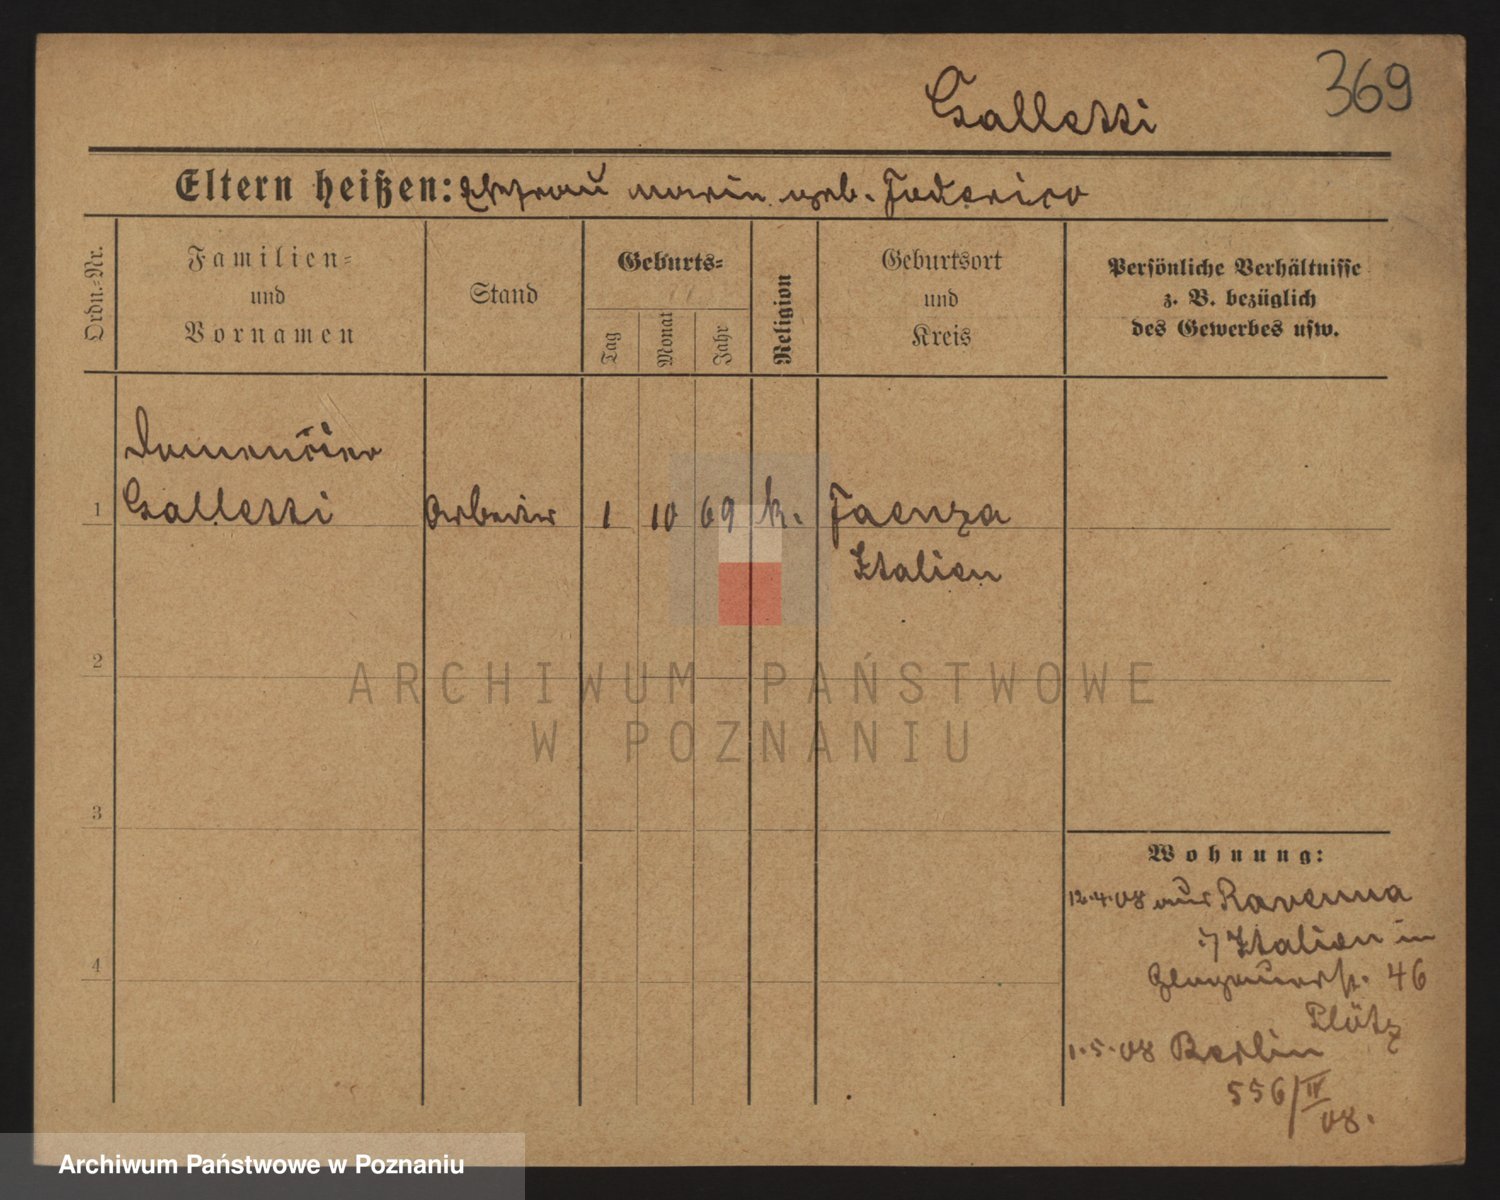 369
Galletti
Eltern heißen: Ehefrau Marie geb. Foderico
Ordn.-Nr.
Familien-
und
Vornamen
Stand
Geburts-
Tag
Monat
Jahr
Religion
Geburtsort
und
Kreis
Persönliche Verhältnisse
z. B. bezüglich
des Gewerbes usw.
1
Galletti Arbeiter 1 10 69 k. Faenza
Italien
2
3
4
Wohnung:
12.4.08 aus Ravenna
Italien in
Glogauerstr. 46
Plötz
1.5.08 Berlin
556/IV
08.
ARCHIWUM PAŃSTWOWE
W POZNANIU
Archiwum Państwowe w Poznaniu